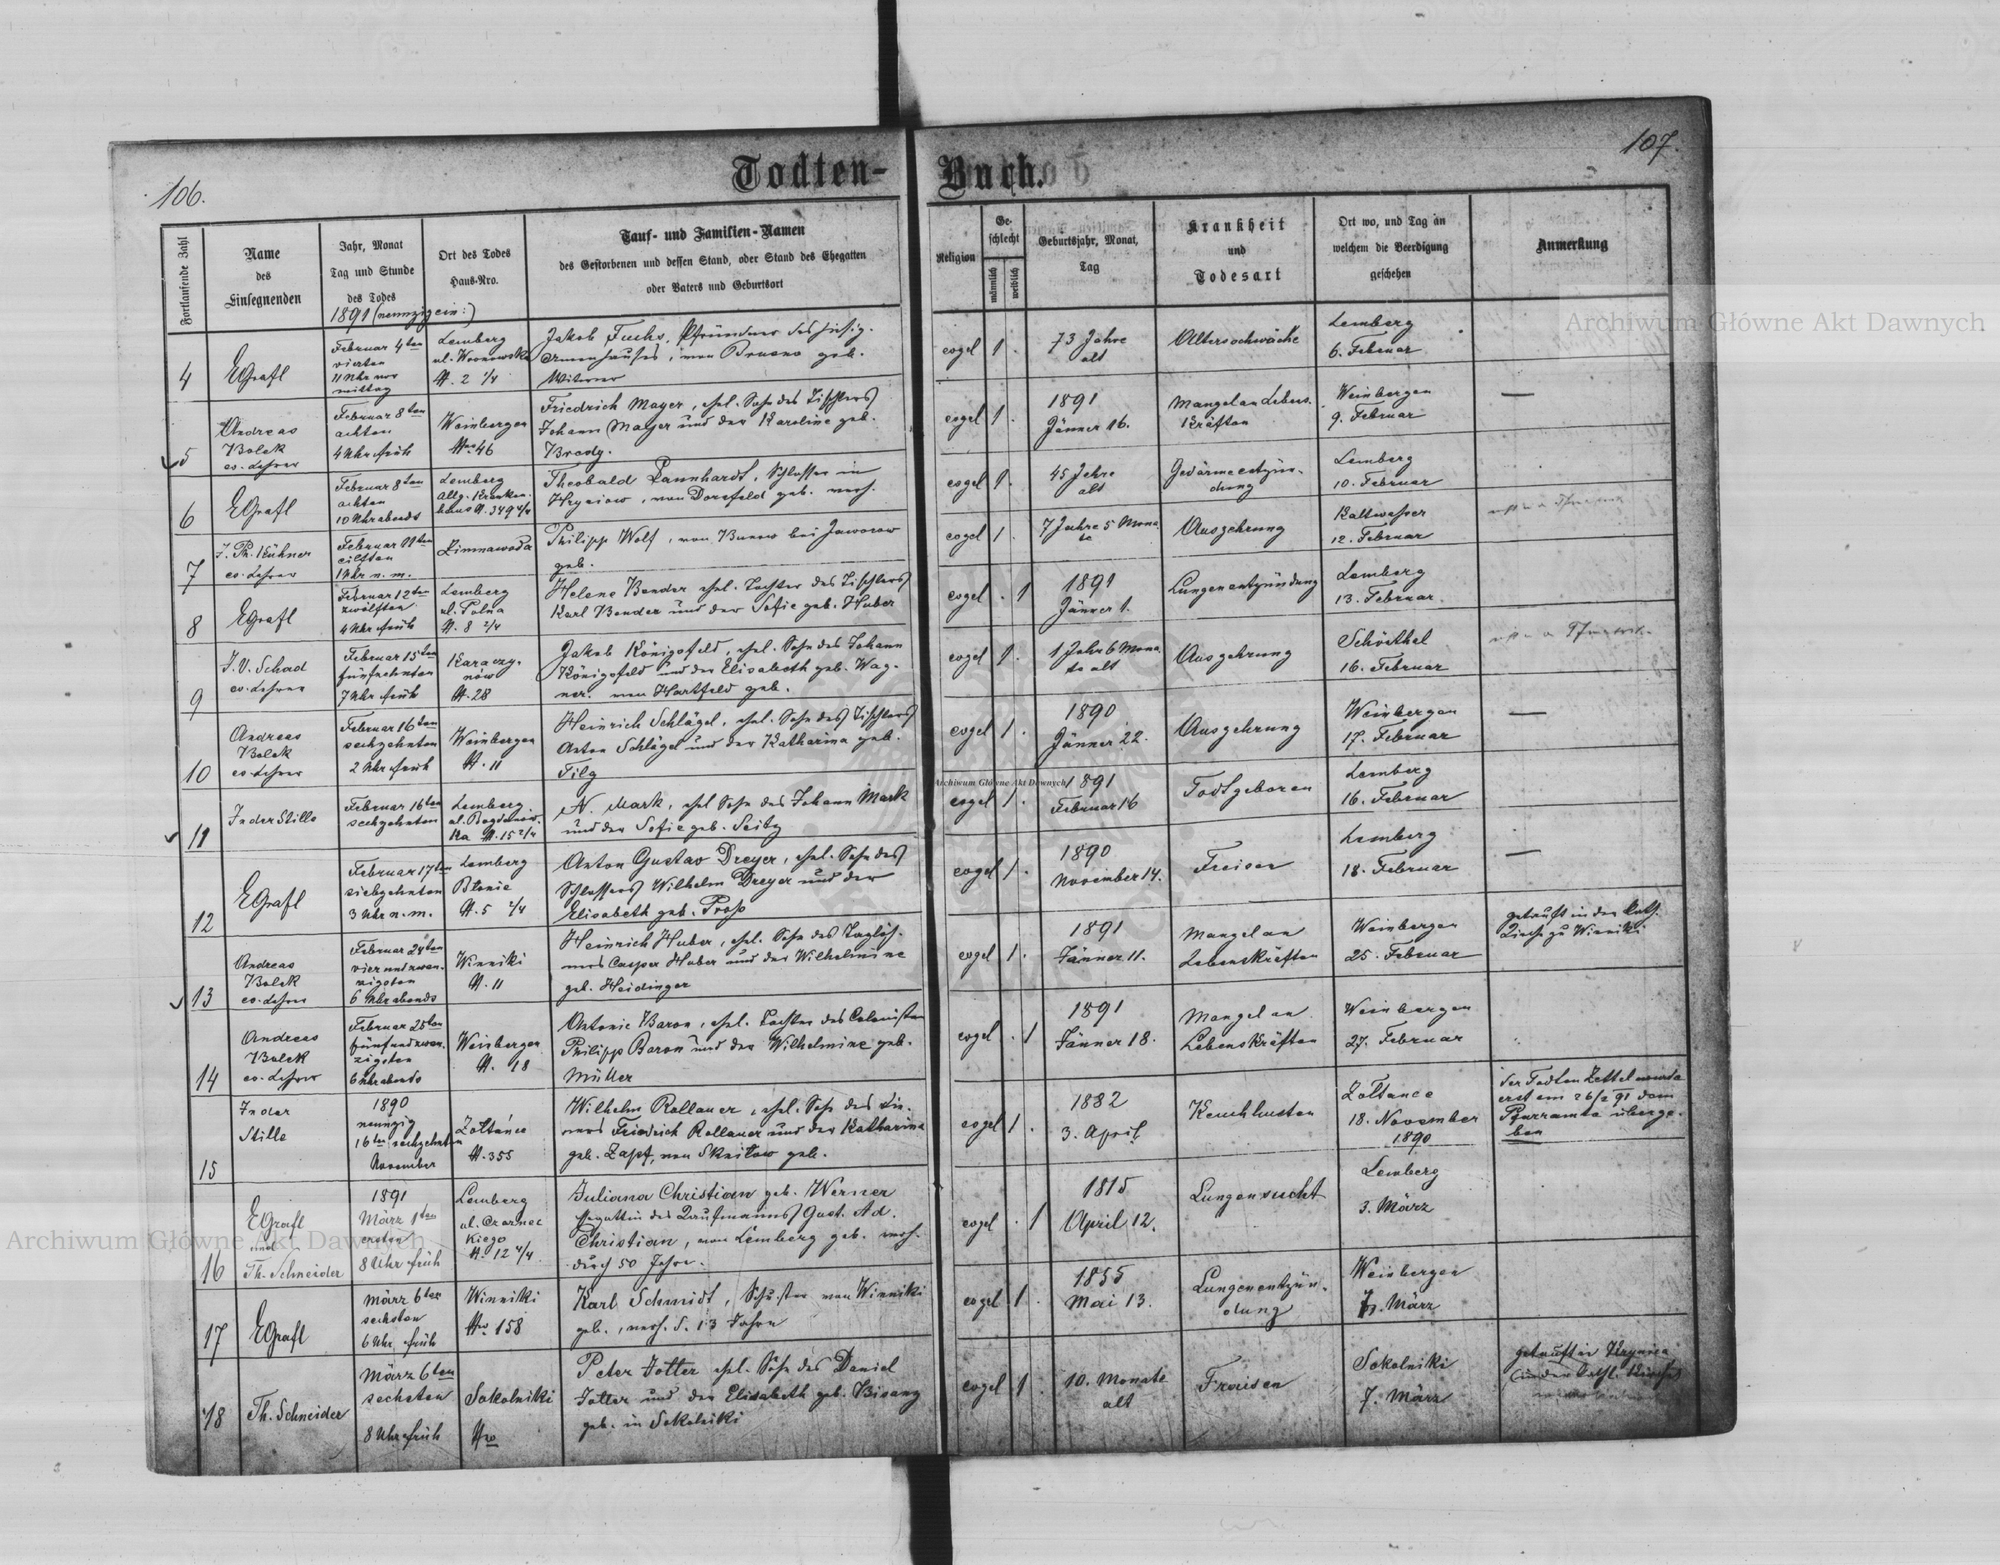 106.
Todten-
Buch.
107.
Fortlaufende Zahl
Name
des
Einsegnenden
Jahr, Monat
Tag und Stunde
des Todes
Ort des Todes
Haus-Nro.
Tauf- und Familien-Namen
des Gestorbenen und dessen Stand, oder Stand des Ehegatten
oder Vaters und Geburtsort
Religion
Ge-
schlecht
männlich
weiblich
Geburtsjahr, Monat,
Tag
Krankheit
und
Todesart
Ort wo, und Tag an
welchem die Beerdigung
geschehen
Anmerkung
1891 (neunzigein:)
4
EGrafl
Februar 4ten
vierten
11 Uhr vor
mittag
Lemberg
ul.
N. 2 1/4
Jakob Fuchs, Pfründner des hiesig.
Armenhauses, von
geb.
evgel
1
73 Jahre
alt
Altersschwäche
Lemberg
6. Februar
5
Andreas
Bolek
ev. Lehrer
Februar 8ten
achten
4 Uhr früh
Weinbergen
Nro 46
Friedrich Mayer, ehel. Sohn des Tischlers
Johann Mayer und der Karoline geb.
Brody.
evgel
1
1891
Jänner 16.
Mangel an Lebens-
kräften
Weinbergen
9. Februar
—
6
EGrafl
Februar 8ten
achten
10 Uhr abends
Lemberg
Allg. Kranken-
haus N. 349 4/4
Theobald Lannhardt, Schlosser in
von Dornfeld geb. verh.
evgel
1
45 Jahre
alt
Gedärmeentzün-
dung
Lemberg
10. Februar
7
J. Ph. Kühner
ev. Lehrer
Februar 11ten
eilften
1 Uhr n. m.
Zimnawoda
Philipp Wolf, von Bunow bei Jaworow
geb.
evgel
1
7 Jahre 5 Mona
te
Auszehrung
Kaltwasser
12. Februar
8
EGrafl
Februar 12ten
zwölften
4 Uhr früh
Lemberg
ul. Polna
N. 8 2/4
Helene Bender ehel. Tochter des Tischlers
Karl Bender und der Sofie geb. Huber
evgel
1
1891
Jänner 1.
Lungenentzündung
Lemberg
13. Februar
9
J. V. Schad
ev. Lehrer
Februar 15ten
fünfzehnten
7 Uhr früh
Karaczy-
now
N. 28
Jakob Königsfeld, ehel. Sohn des Johann
Königsfeld und der Elisabeth geb. Wag-
ner. von Hartfeld geb.
evgel
1
1 Jahr 6 Mona
te alt
Auszehrung
Schönthal
16. Februar
10
Andreas
Bolek
ev. Lehrer
Februar 16ten
sechzehnten
2 Uhr früh
Weinbergen
N. 11
Heinrich Schlägel, ehel. Sohn des Tischlers
Anton Schlägel und der Katharina geb.
Filg
evgel
1
1890
Jänner 22.
Auszehrung
Weinbergen
17. Februar
—
11
In der Stille
Februar 16ten
sechzehnten
Lemberg
ul. Bogdanow-
ka N. 15 2/4
N. Mark, ehel Sohn des Johann Mark
und der Sofie geb. Seitz
evgel
1
1891
Februar 16
Todtgeboren
Lemberg
16. Februar
12
EGrafl
Februar 17ten
siebzehnten
3 Uhr n. m.
Lemberg
Błonie
N. 5 2/4
Anton Gustav Dreyer, ehel. Sohn des
Schlossers Wilhelm Dreyer und der
Elisabeth geb. Pross
evgel
1
1890
November 14.
Freisen
Lemberg
18. Februar
—
13
Andreas
Bolek
ev. Lehrer
Februar 24ten
vierundzwan-
zigsten
6 Uhr abends
Winniki
N. 11
Heinrich Huber, ehel. Sohn des Taglöh-
ners Casper Huber und der Wilhelmine
geb. Heidinger
evgel
1
1891
Jänner 11.
Mangel an
Lebenskräften
Weinbergen
25. Februar
getauft in der kath.
Kirche zu Winniki
14
Andreas
Bolek
ev. Lehrer
Februar 25ten
fünfundzwan-
zigsten
6 Uhr abends
Weinbergen
N. 18
Antonie Baron, ehel. Tochter des Colonisten
Philipp Baron und der Wilhelmine geb.
Müller
evgel
1
1891
Jänner 18.
Mangel an
Lebenskräften
Weinbergen
27. Februar
15
In der
Stille
1890
neunzig
16ten sechzehnten
November
Zoltance
N. 355
Wilhelm Rollauer, ehel. Sohn des
Friedrich Rollauer und der Katharina
geb. Zapf, von Sknilow geb.
evgel
1
1882
3. April
Keuchhusten
Zoltance
18. November
1890
der Todten Zettel wurde
erst am 26/2 91 dem
Pfarramte überge-
ben
16
EGrafl
und
Th. Schneider
1891
März 1ten
ersten
8 Uhr früh
Lemberg
ul. Czarnec
kiego
N. 12 4/4
Juliana Christian geb. Werner
Ehegattin des Kaufmanns Gust. Ad.
Christian, von Lemberg geb. verh.
durch 50 Jahre.
evgel
1
1815
April 12.
Lungensucht
Lemberg
3. März
17
EGrafl
März 6ten
sechsten
6 Uhr früh
Winniki
Nro 158
Karl Schmidt, Schuster von Winniki
geb., verh. d. 13 Jahre
evgel
1
1855
Mai 13.
Lungenentzün-
dung
Weinbergen
7. März
18
Th. Schneider
März 6ten
sechsten
8 Uhr früh
Sokolniki
Nro
Peter Jotter ehel. Sohn des Daniel
Jotter und der Elisabeth geb. Bisanz
geb. in Sokolniki
evgel
1
10. Monate
alt
Fraisen
Sokolniki
7. März
getauft in Krynica
(in der kathl. Kirche)
Archiwum Główne Akt Dawnych
Archiwum Główne Akt Dawnych
Archiwum Główne Akt Dawnych